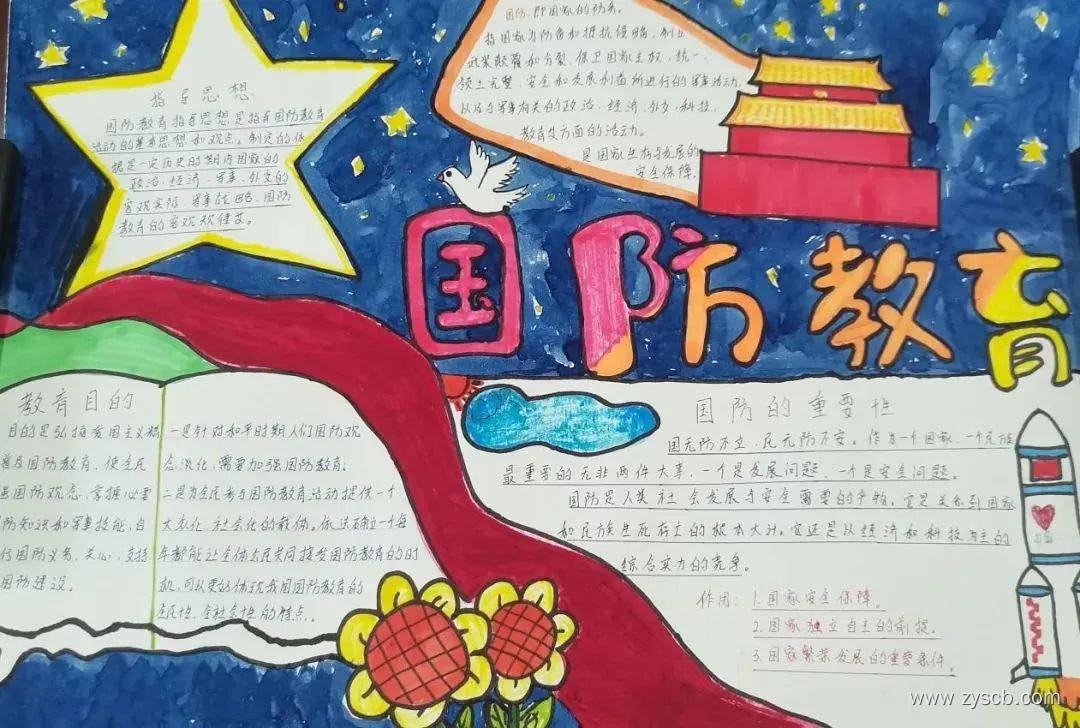 国防，即国家的防务。
指国家为防备和抵抗侵略，制止
武装颠覆和分裂，保卫国家主权，统一，
领土完整，安全和发展利益所进行的军事活动，
以及与军事有关的政治，经济，外交，科技，
教育等方面的活动。
是国家生存与发展的
安全保障。
指导思想
国防教育指导思想是指导国防教育
活动的基本思想和观点。制定的依
据是一定历史时期内国家的
政治、经济、军事、外交的
客观实际，军事战略，国防
教育的客观规律等。
国防教育
教育目的
目的是弘扬爱国主义精
普及国防教育，使全民
国防观念，掌握必要
防知识和军事技能，自
行国防义务，关心，支持
国防建设。
一是针对和平时期人们国防观
念淡化，需要加强国防教育；
二是为全民参与国防教育活动提供一个
大众化、社会化的载体。依法确立一个每
年都能让全体公民共同接受国防教育的时
机，可以更好体现我国国防教育的
全民性，全社会性的特点。
国防的重要性
国无防不立，民无防不安。作为一个国家，一个民族
最重要的无非两件大事，一个是发展问题，一个是安全问题。
国防是人类社会发展与安全需要的产物，它是关系到国家
和民族生死存亡的根本大计。它还是以经济和科技为主的
综合实力的竞争。
作用：1.国家安全保障。
2.国家独立自主的前提。
3.国家繁荣发展的重要条件。
www.zyscb.com